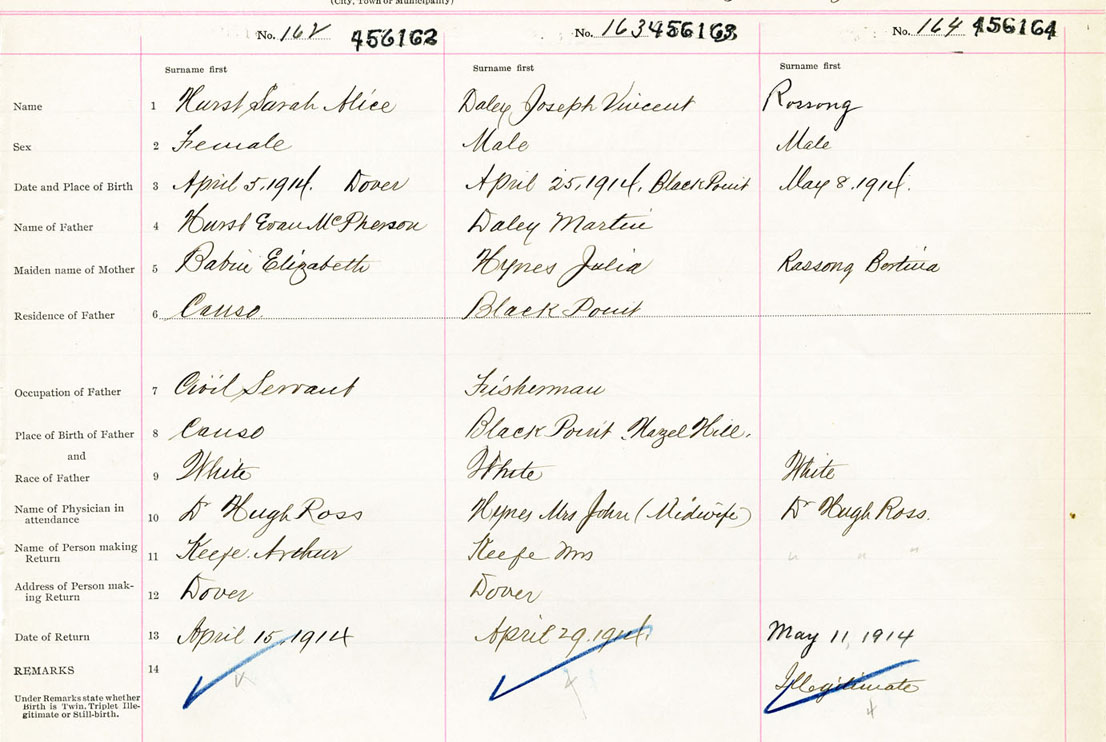 (City, Town or Municipality)
No. 162 456162 No. 163 456163 No. 164 456164
Surname first Surname first Surname first
Name 1 Hurst Sarah Alice Daley Joseph Vincent Rossong
Sex 2 Female Male Male
Date and Place of Birth 3 April 5, 1914. Dover April 25, 1914, Black Point May 8, 1914.
Name of Father 4 Hurst Evan McPherson Daley Martin
Maiden name of Mother 5 Babin Elizabeth Hynes Julia Rassong Bertina
Residence of Father 6 Canso Black Point
Occupation of Father 7 Civil Servant Fisherman
Place of Birth of Father 8 Canso Black Point Hazel Hill.
and
Race of Father 9 White White White
Name of Physician in
attendance 10 Dr Hugh Ross Hynes Mrs John (Midwife) Dr Hugh Ross.
Name of Person making
Return 11 Keefe Arthur Keefe Mrs " " "
Address of Person mak-
ing Return 12 Dover Dover
Date of Return 13 April 15, 1914 April 29, 1914. May 11, 1914
REMARKS 14 Illegitimate
Under Remarks state whether
Birth is Twin, Triplet Ille-
gitimate or Still-birth.